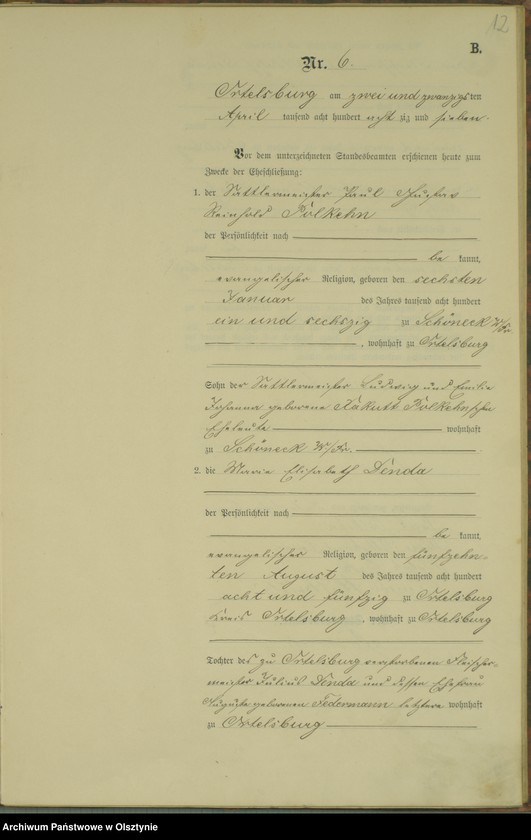 12
B.
Nr. 6.
Ortelsburg am zwei und zwanzigsten
April tausend acht hundert acht zig und sieben.
Vor dem unterzeichneten Standesbeamten erschienen heute zum
Zwecke der Eheschließung:
1. der Sattlermeister Paul Gustav
Reinhold Polkehn
der Persönlichkeit nach
be kannt,
evangelischer Religion, geboren den sechsten
Januar des Jahres tausend acht hundert
ein und sechszig zu Schöneck W/Pr.
, wohnhaft zu Ortelsburg
Sohn der Sattlermeister Ludwig und Emilie
Johanna geborene Polkehn'schen
Eheleute wohnhaft
zu Schöneck W/Pr.
2. die Marie Elisabeth Denda
der Persönlichkeit nach
be kannt,
evangelischer Religion, geboren den fünfzehn-
ten August des Jahres tausend acht hundert
acht und fünfzig zu Ortelsburg
Kreis Ortelsburg, wohnhaft zu Ortelsburg
Tochter des zu Ortelsburg verstorbenen Fleischer-
meister Julius Denda und dessen Ehefrau
Auguste geborenen Federmann letztere wohnhaft
zu Ortelsburg
Archiwum Państwowe w Olsztynie